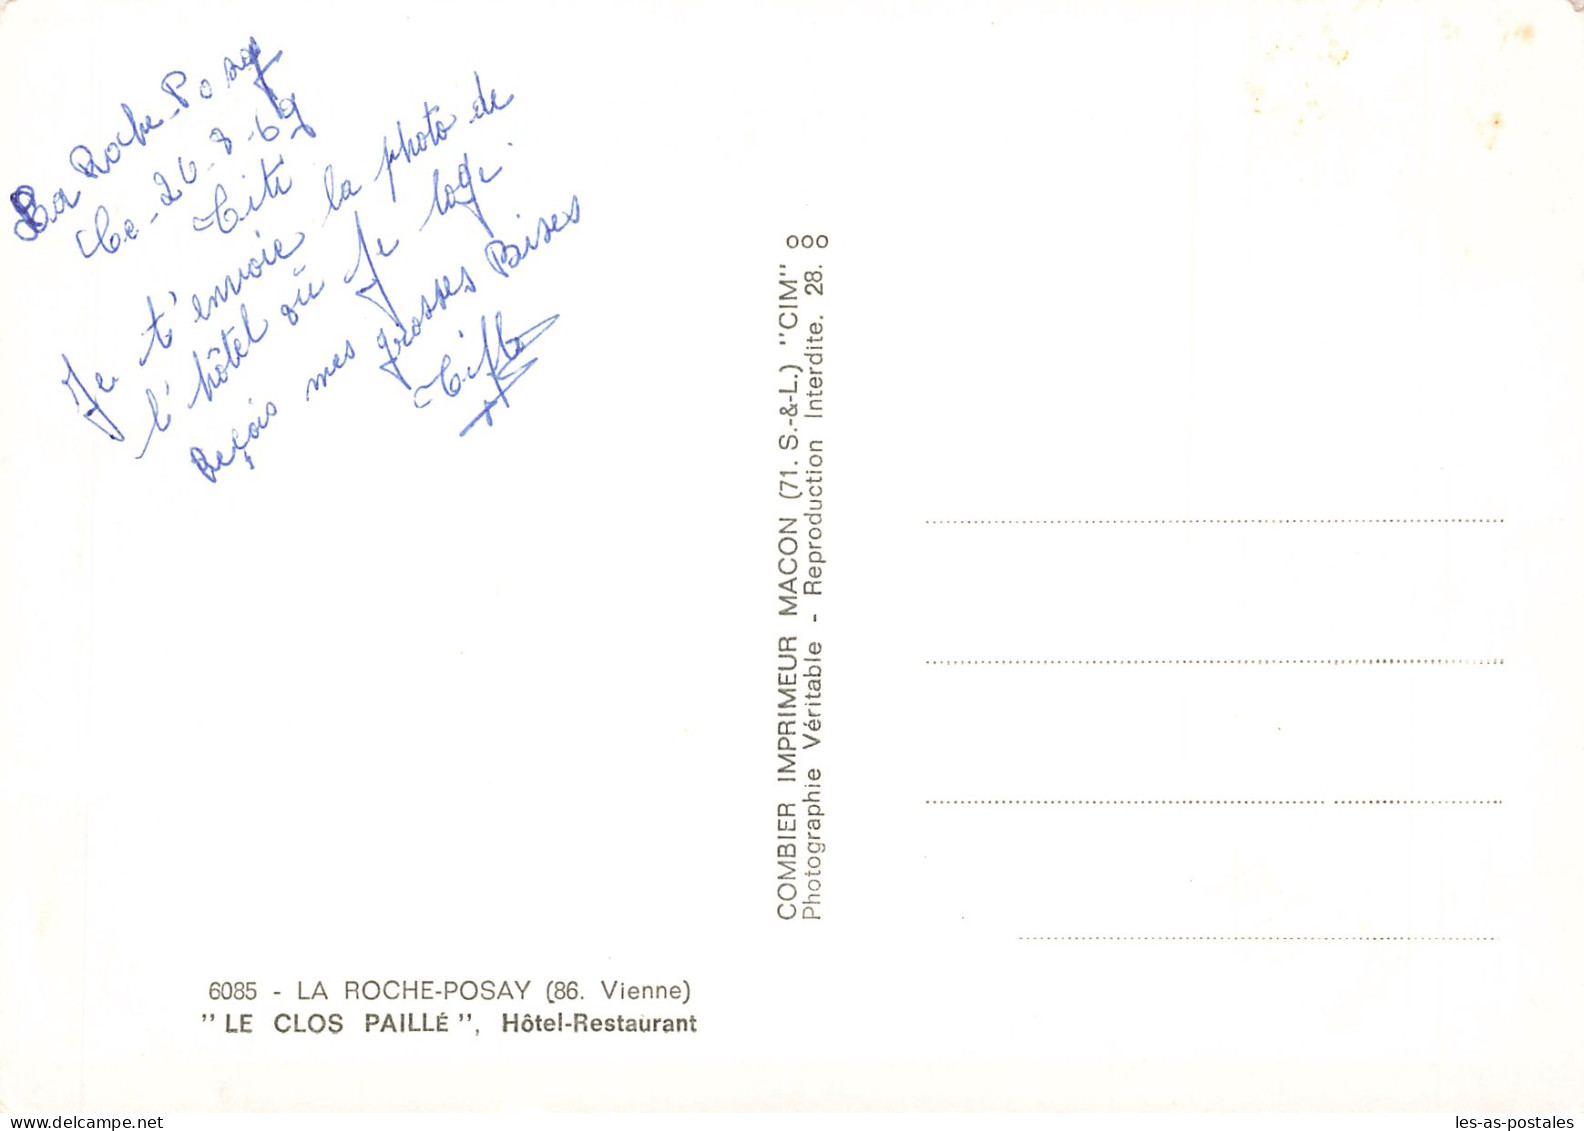 La Roche-Posay
Le-26-8-69
Titi
Je t'envoie la photo de
l'hôtel où Je logé.
Reçois mes grosses Bises
COMBIER IMPRIMEUR MACON (71. S.-&-L.) "CIM" ooo
Photographie Véritable - Reproduction Interdite. 28.
6085 - LA ROCHE-POSAY (86. Vienne)
"LE CLOS PAILLÉ", Hôtel-Restaurant
les-as-postales